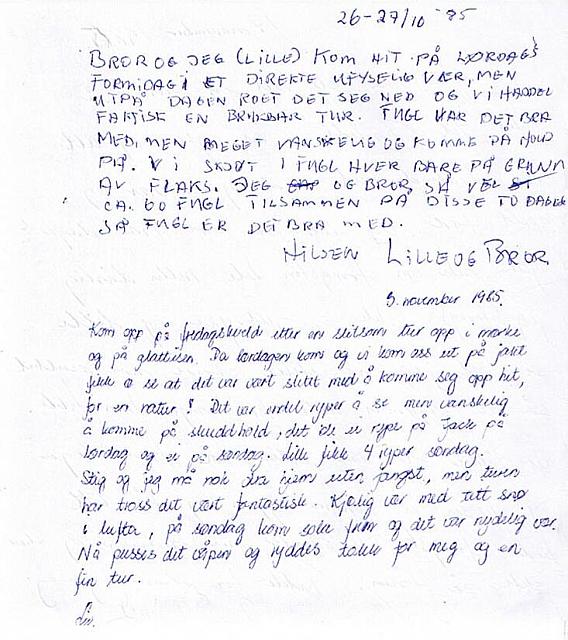 26-27/10 -85
BROR OG JEG (LILLE) KOM HIT PÅ LØRDAGS
FORMIDAG I ET DIREKTE UFYSELIG VÆR, MEN
UTPÅ DAGEN ROET DET SEG NED OG VI HADDE
FAKTISK EN BRUKBAR TUR. FUGL VAR DET BRA
MED, MEN MEGET VANSKELIG OG KOMME PÅ HOLD
PÅ. VI SKJØT 1 FUGL HVER BARE PÅ GRUNN
AV FLAKS. JEG OG BROR, SÅ VEL
CA. 60 FUGL TILSAMMEN PÅ DISSE TO DAGER
SÅ FUGL ER DET BRA MED.
HILSEN LILLE OG BROR
3. november 1985.
Kom opp på fredagskveld etter en slitsom tur opp i mørke
og på glattisen. Da lørdagen kom og vi kom oss ut på jakt
fikk vi se at det var vært slitet med å komme seg opp hit,
for en natur! Det var endel ryper å se men vanskelig
å komme på skuddhold, det ble ei rype på Jack på
lørdag og ei på søndag. Lille fikk 4 ryper søndag.
Stig og jeg må nok dra hjem uten fangst, men turen
har tross det vært fantastisk. Kjølig vær med tett snø
i lufta, på søndag kom sola frem og det var nydelig vær.
Nå pusses det våpen og ryddes takk for meg og en
fin tur.
Liv.